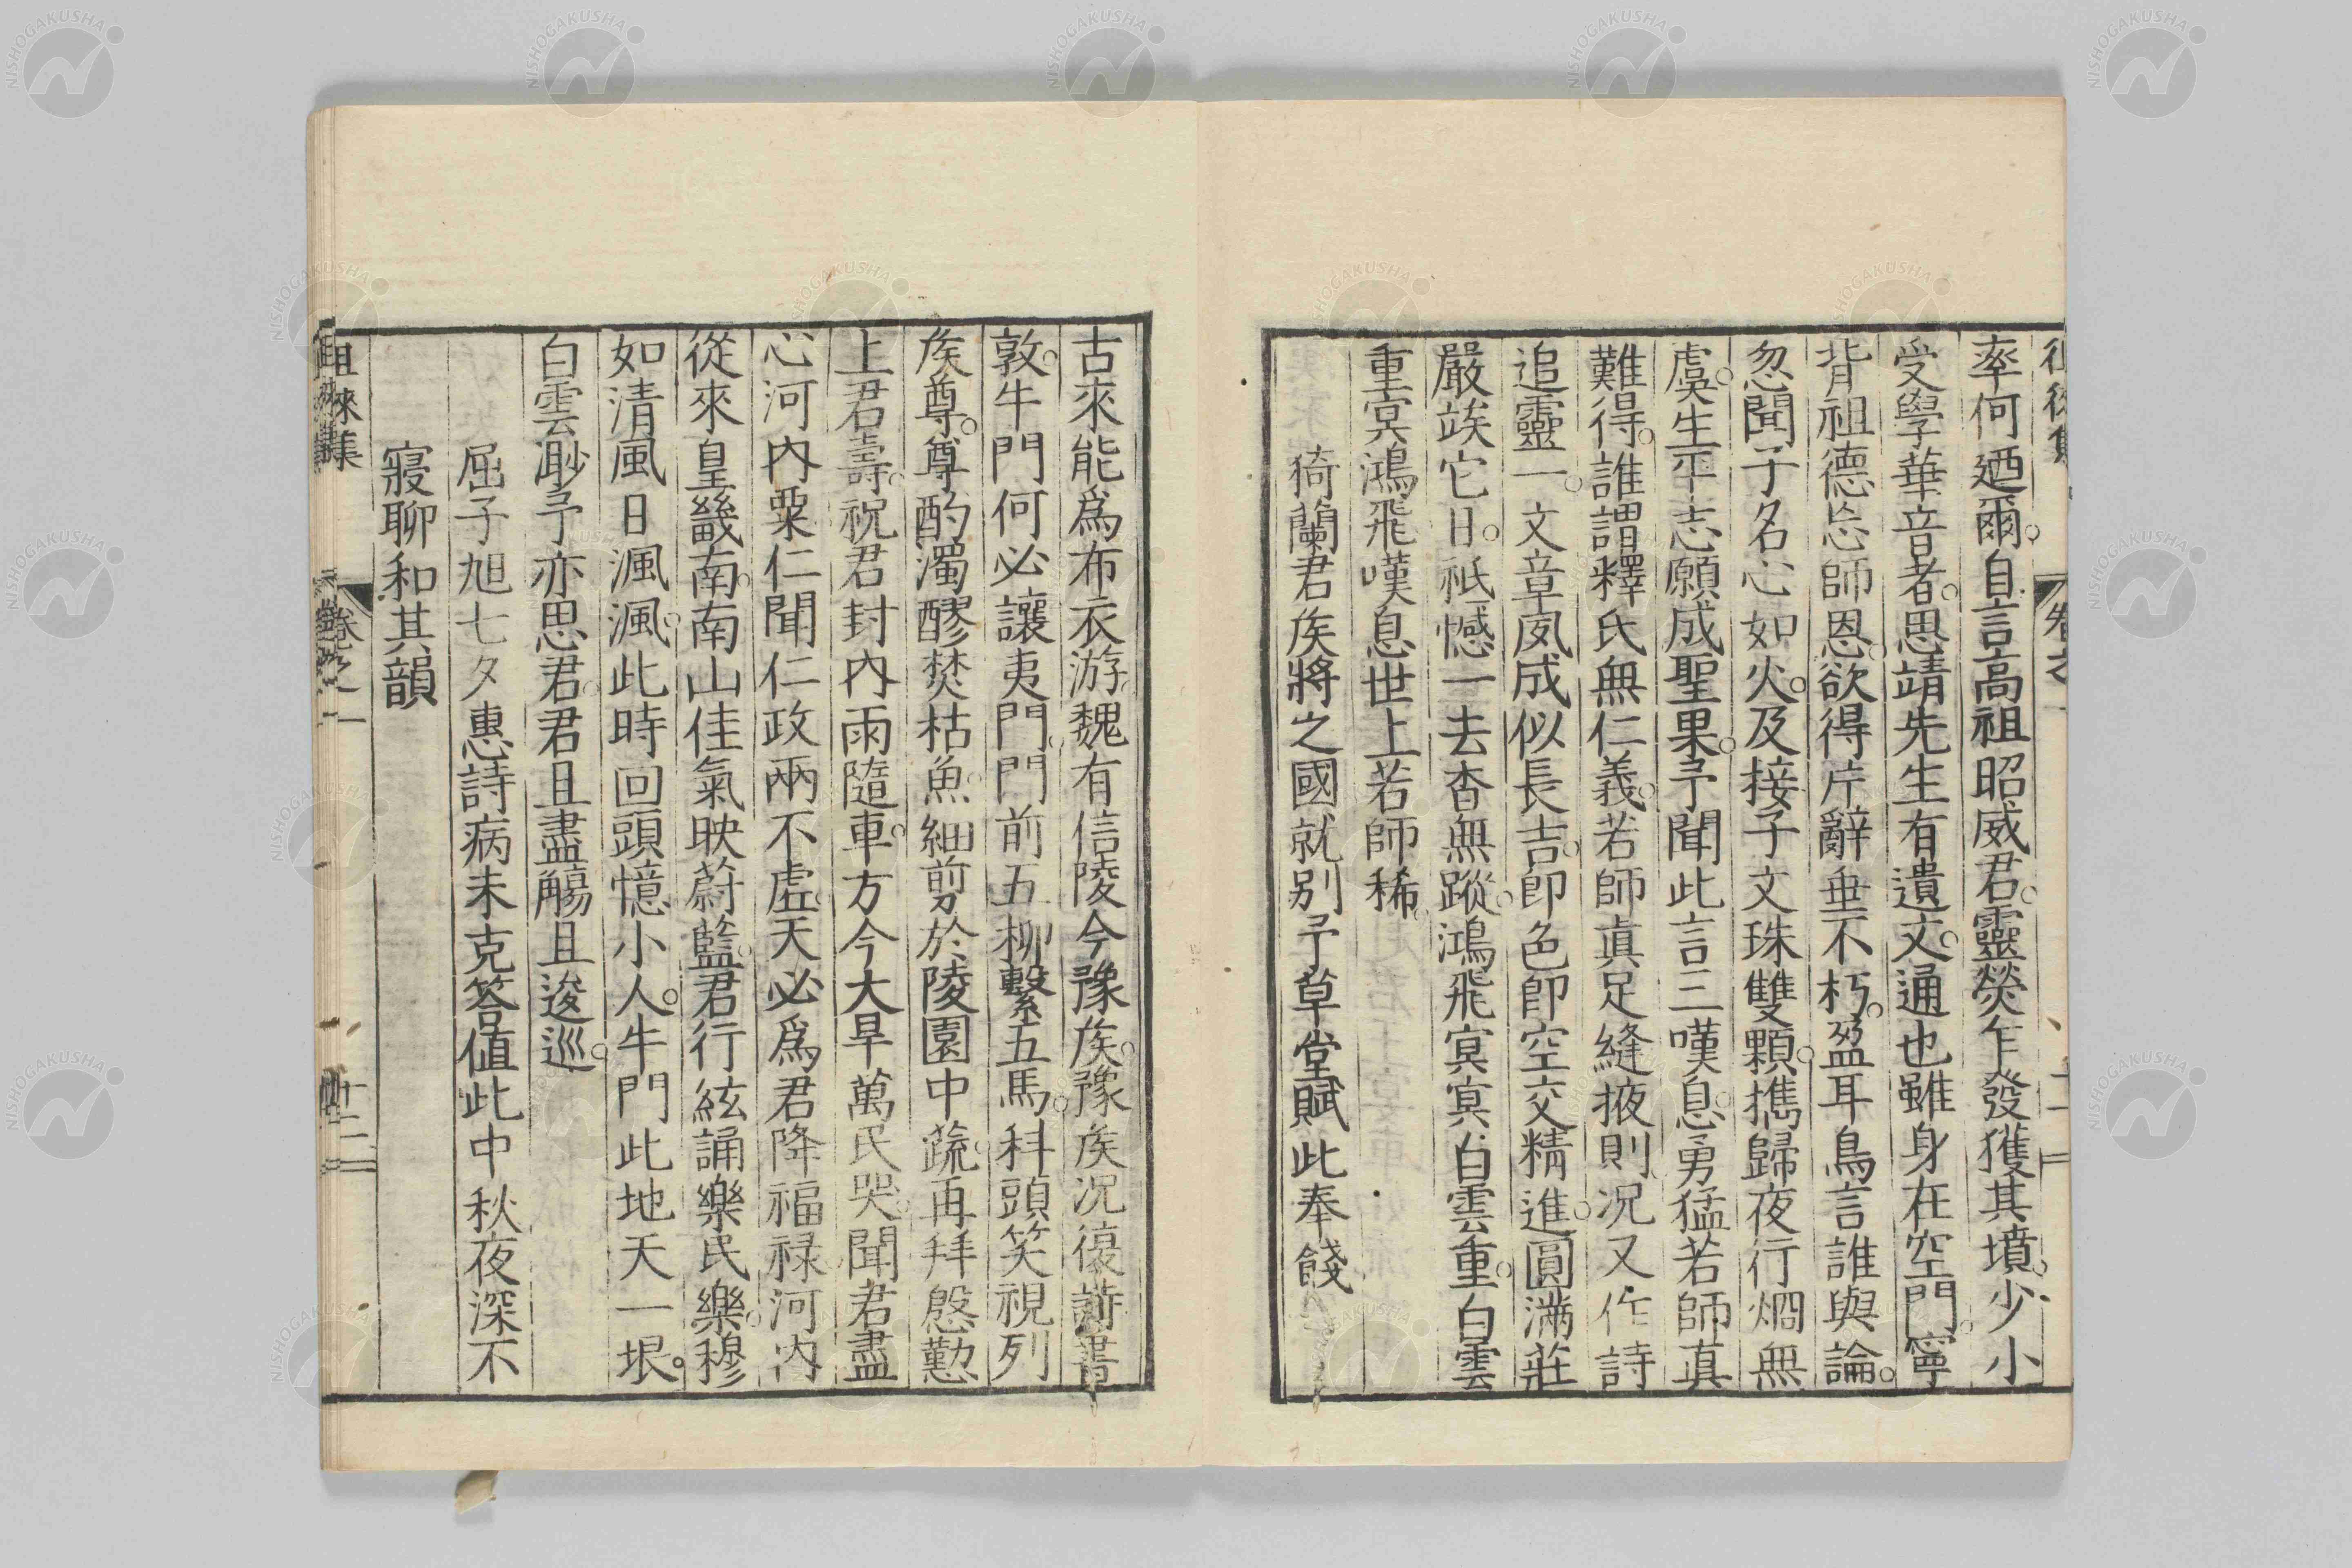 率何迺爾。自言高祖昭威君。靈熒乍發獲其墳。少小
受學華音者。思靖先生有遺文。通也雖身在空門。寧
背祖德忘師恩。欲得片辭垂不朽。盈耳鳥言誰與論。
忽聞子名心如火。及接子文珠雙顆。携歸夜行烱無
虞。生平志願成聖果。予聞此言三嘆息。勇猛若師真
難得。誰謂釋氏無仁義。若師眞足縫掖則。況又作詩
追靈一。文章夙成似長吉。卽色卽空交精進。圓滿莊
嚴竢它日。祇憾一去杳無蹤。鴻飛冥冥白雲重。白雲
重冥鴻飛嘆息世上若師稀。
猗蘭君矦將之國就別予草堂賦此奉餞
古來能爲布衣游。魏有信陵今豫矦。豫矦況復詩書
敦。牛門何必讓夷門。門前五柳繫五馬。科頭笑視列
矦尊。尊酌濁醪焚枯魚。細剪於陵園中蔬。再拜慇懃
上君壽。祝君封內雨隨車。方今大旱萬民哭。聞君盡
心河內粟仁聞仁政兩不虛。天必爲君降福祿河內
從來皇畿南。南山佳氣映蔚藍。君行絃誦樂民樂。穆
如清風日渢渢。此時回頭憶小人。牛門此地天一垠。
白雲渺予亦思君。君且盡觴且逡巡。
屈子旭七夕惠詩病未克答値此中秋夜深不
寢聊和其韻
徂徠集
卷之一
十二